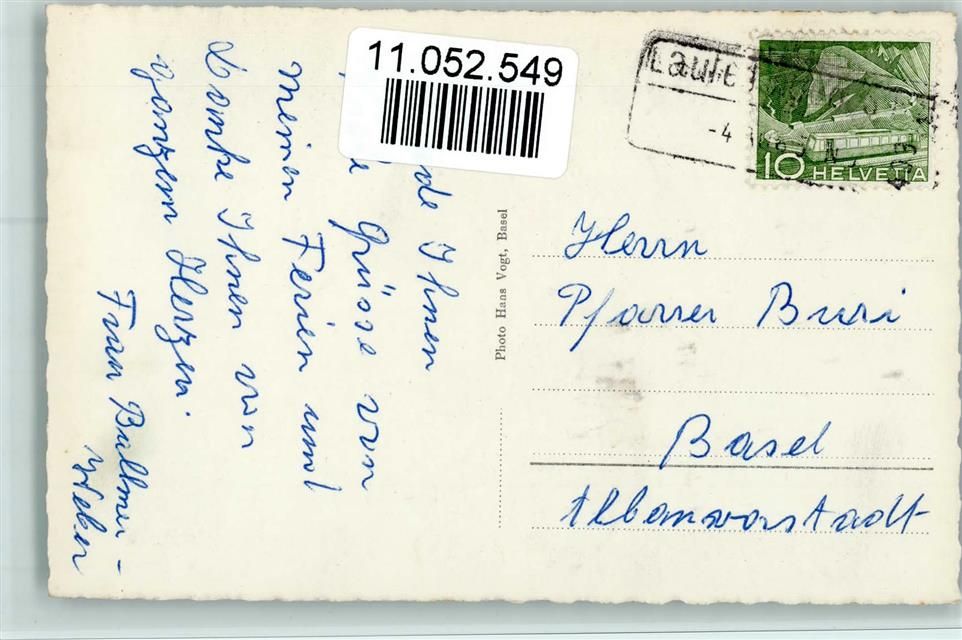 11.052.549
de Ihnen
Grüsse von
meinen Ferien und
danke Ihnen von
ganzem Herzen.
Frau Bullmer-
Weber
Photo Hans Vogt, Basel
-4
10 HELVETIA
Herrn
Pfarrer Buri
Basel
Albanvorstadt